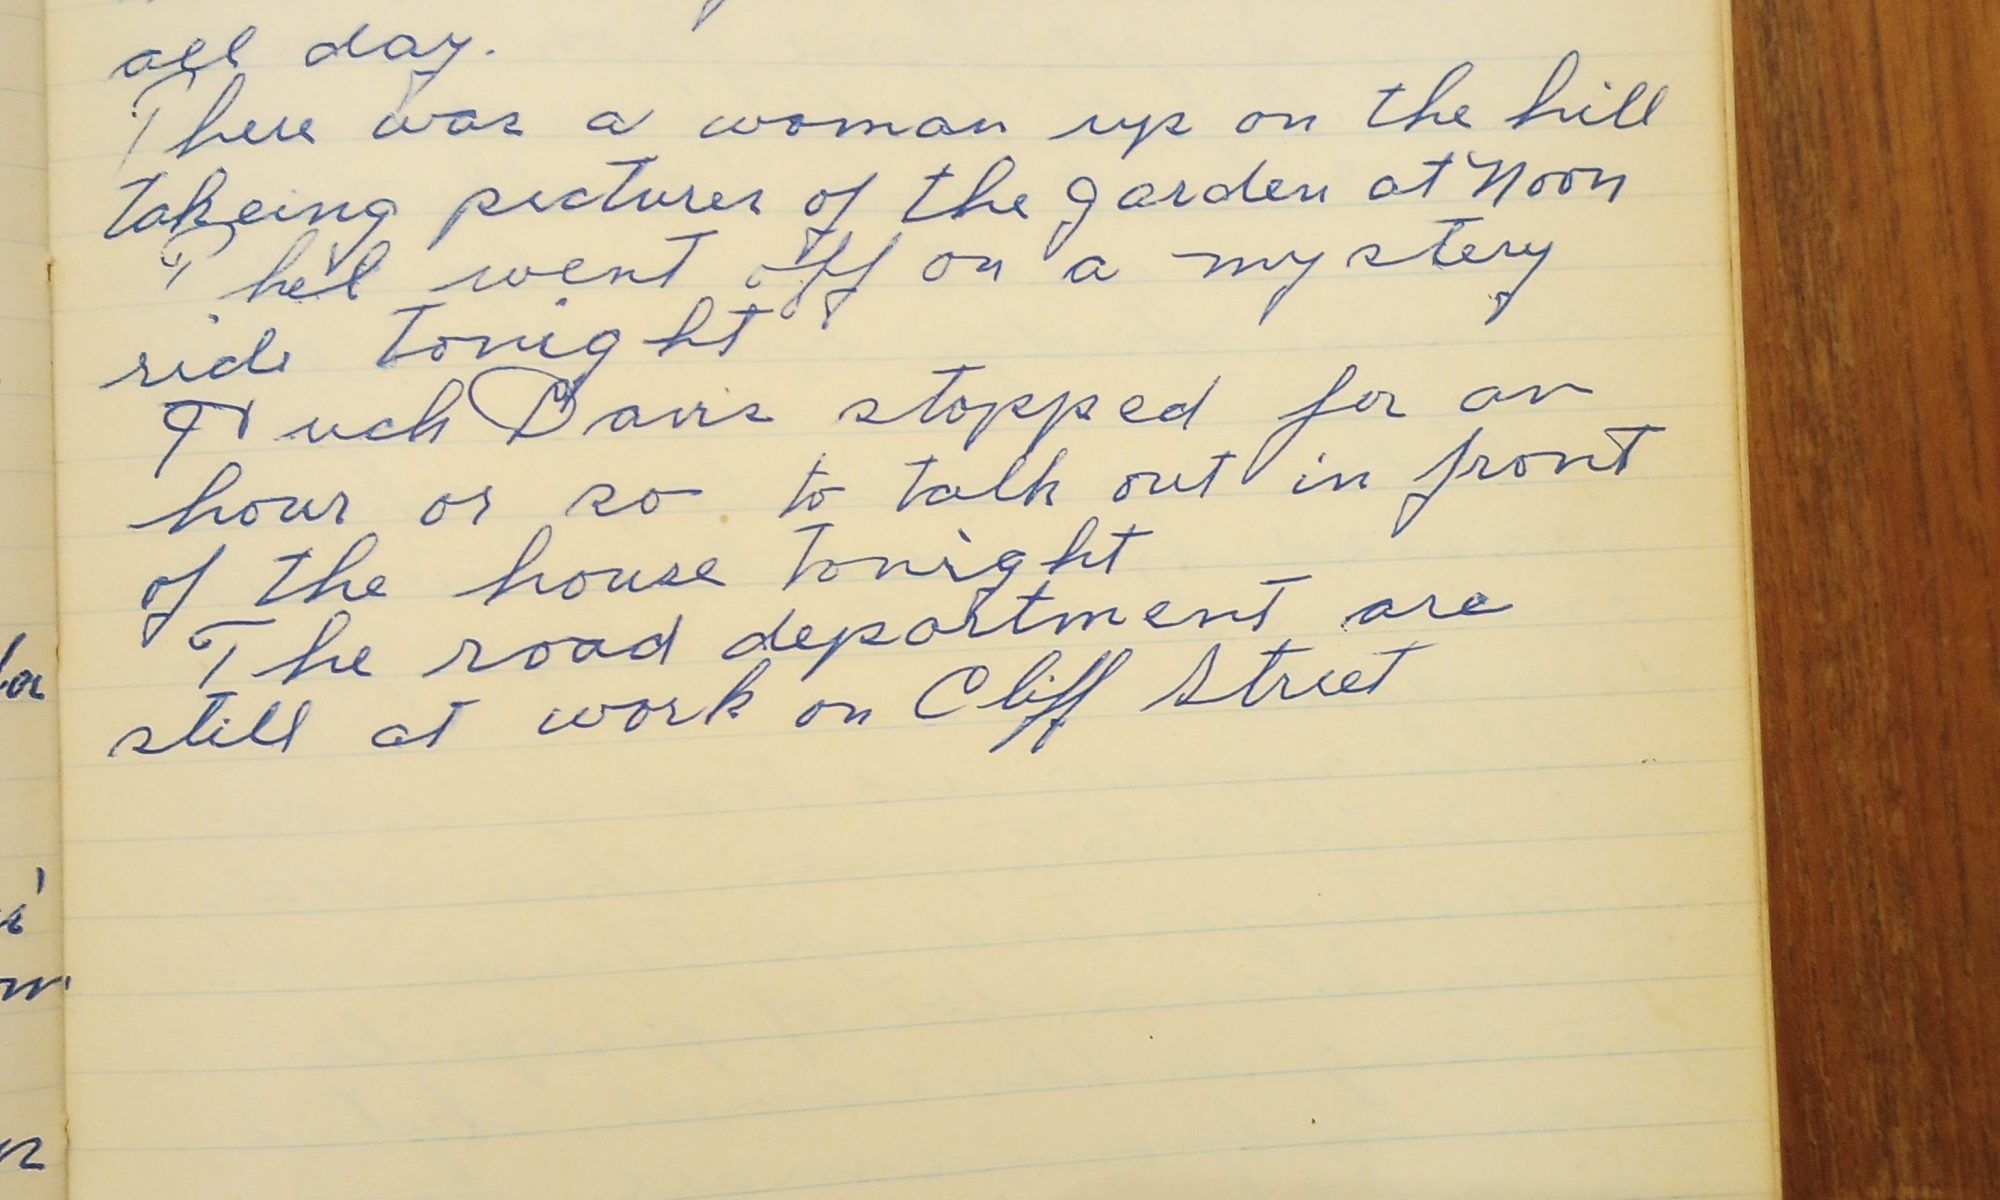 all day.
There was a woman up on the hill
takeing pictures of the garden at Noon
Thel went off on a mystery
ride tonight
Davis stopped for an
hour or so to talk out in front
of the house tonight
The road department are
still at work on Cliff Street